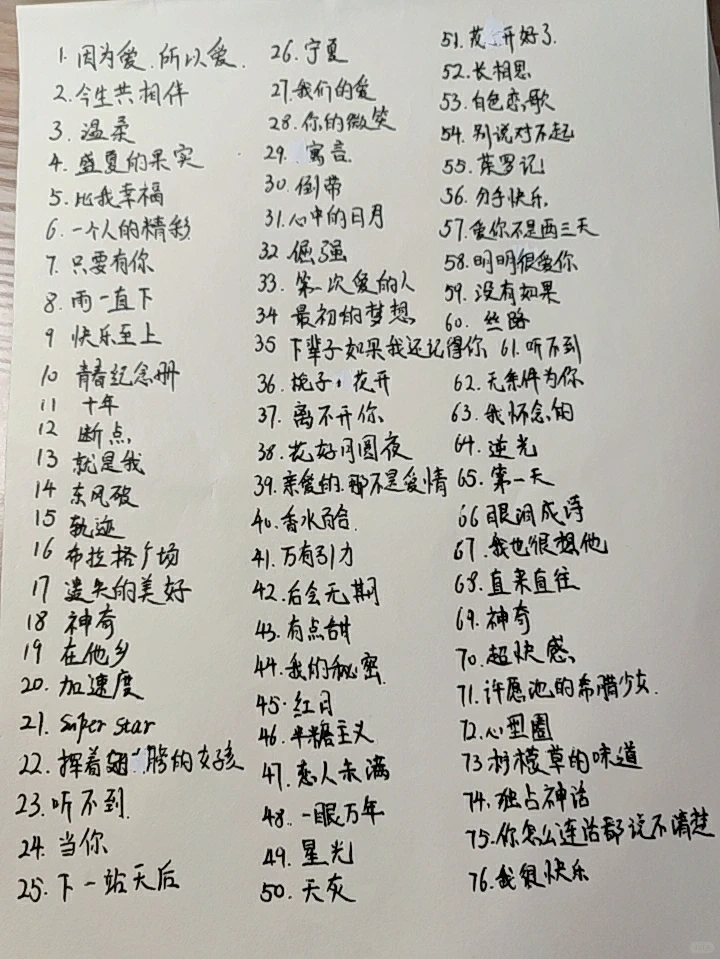 1. 因为爱.所以爱.
2. 今生共相伴
3. 温柔
4. 盛夏的果实
5. 比我幸福
6. 一个人的精彩
7. 只要有你
8. 雨一直下
9 快乐至上
10 青春纪念册
11 十年
12 断点
13 就是我
14 东风破
15 轨迹
16 布拉格广场
17 遗失的美好
18 神奇
19 在他乡
20. 加速度
21. Super Star
22. 挥着翅膀的女孩
23. 听不到.
24. 当你
25. 下一站天后
26. 宁夏
27. 我们的爱
28. 你的微笑
29. 寓言.
30. 倒带
31. 心中的日月
32. 倔强
33. 第一次爱的人
34 最初的梦想
35 下辈子如果我还记得你
36. 栀子花开
37. 离不开你
38. 花好月圆夜
39. 亲爱的.那不是爱情
40. 香水百合.
41. 万有引力
42. 后会无期
43. 有点甜
44. 我的秘密
45. 红日
46. 半糖主义
47. 恋人未满
48. 一眼万年
49. 星光
50. 天灰
51. 花开好了
52. 长相思
53. 白色恋歌
54. 别说对不起
55. 茱罗记!
56. 分手快乐.
57. 爱你不是两三天
58. 明明很爱你
59. 没有如果
60. 丝路
61. 听不到
62. 无条件为你
63. 我怀念的
64. 逆光
65. 第一天
66 眼泪成诗
67. 我也很想他
68. 直来直往
69. 神奇
70. 超快感
71. 许愿池的希腊少女.
72. 心型圈
73 柠檬草的味道
74. 独占神话
75. 你怎么连话都说不清楚
76. 我很快乐